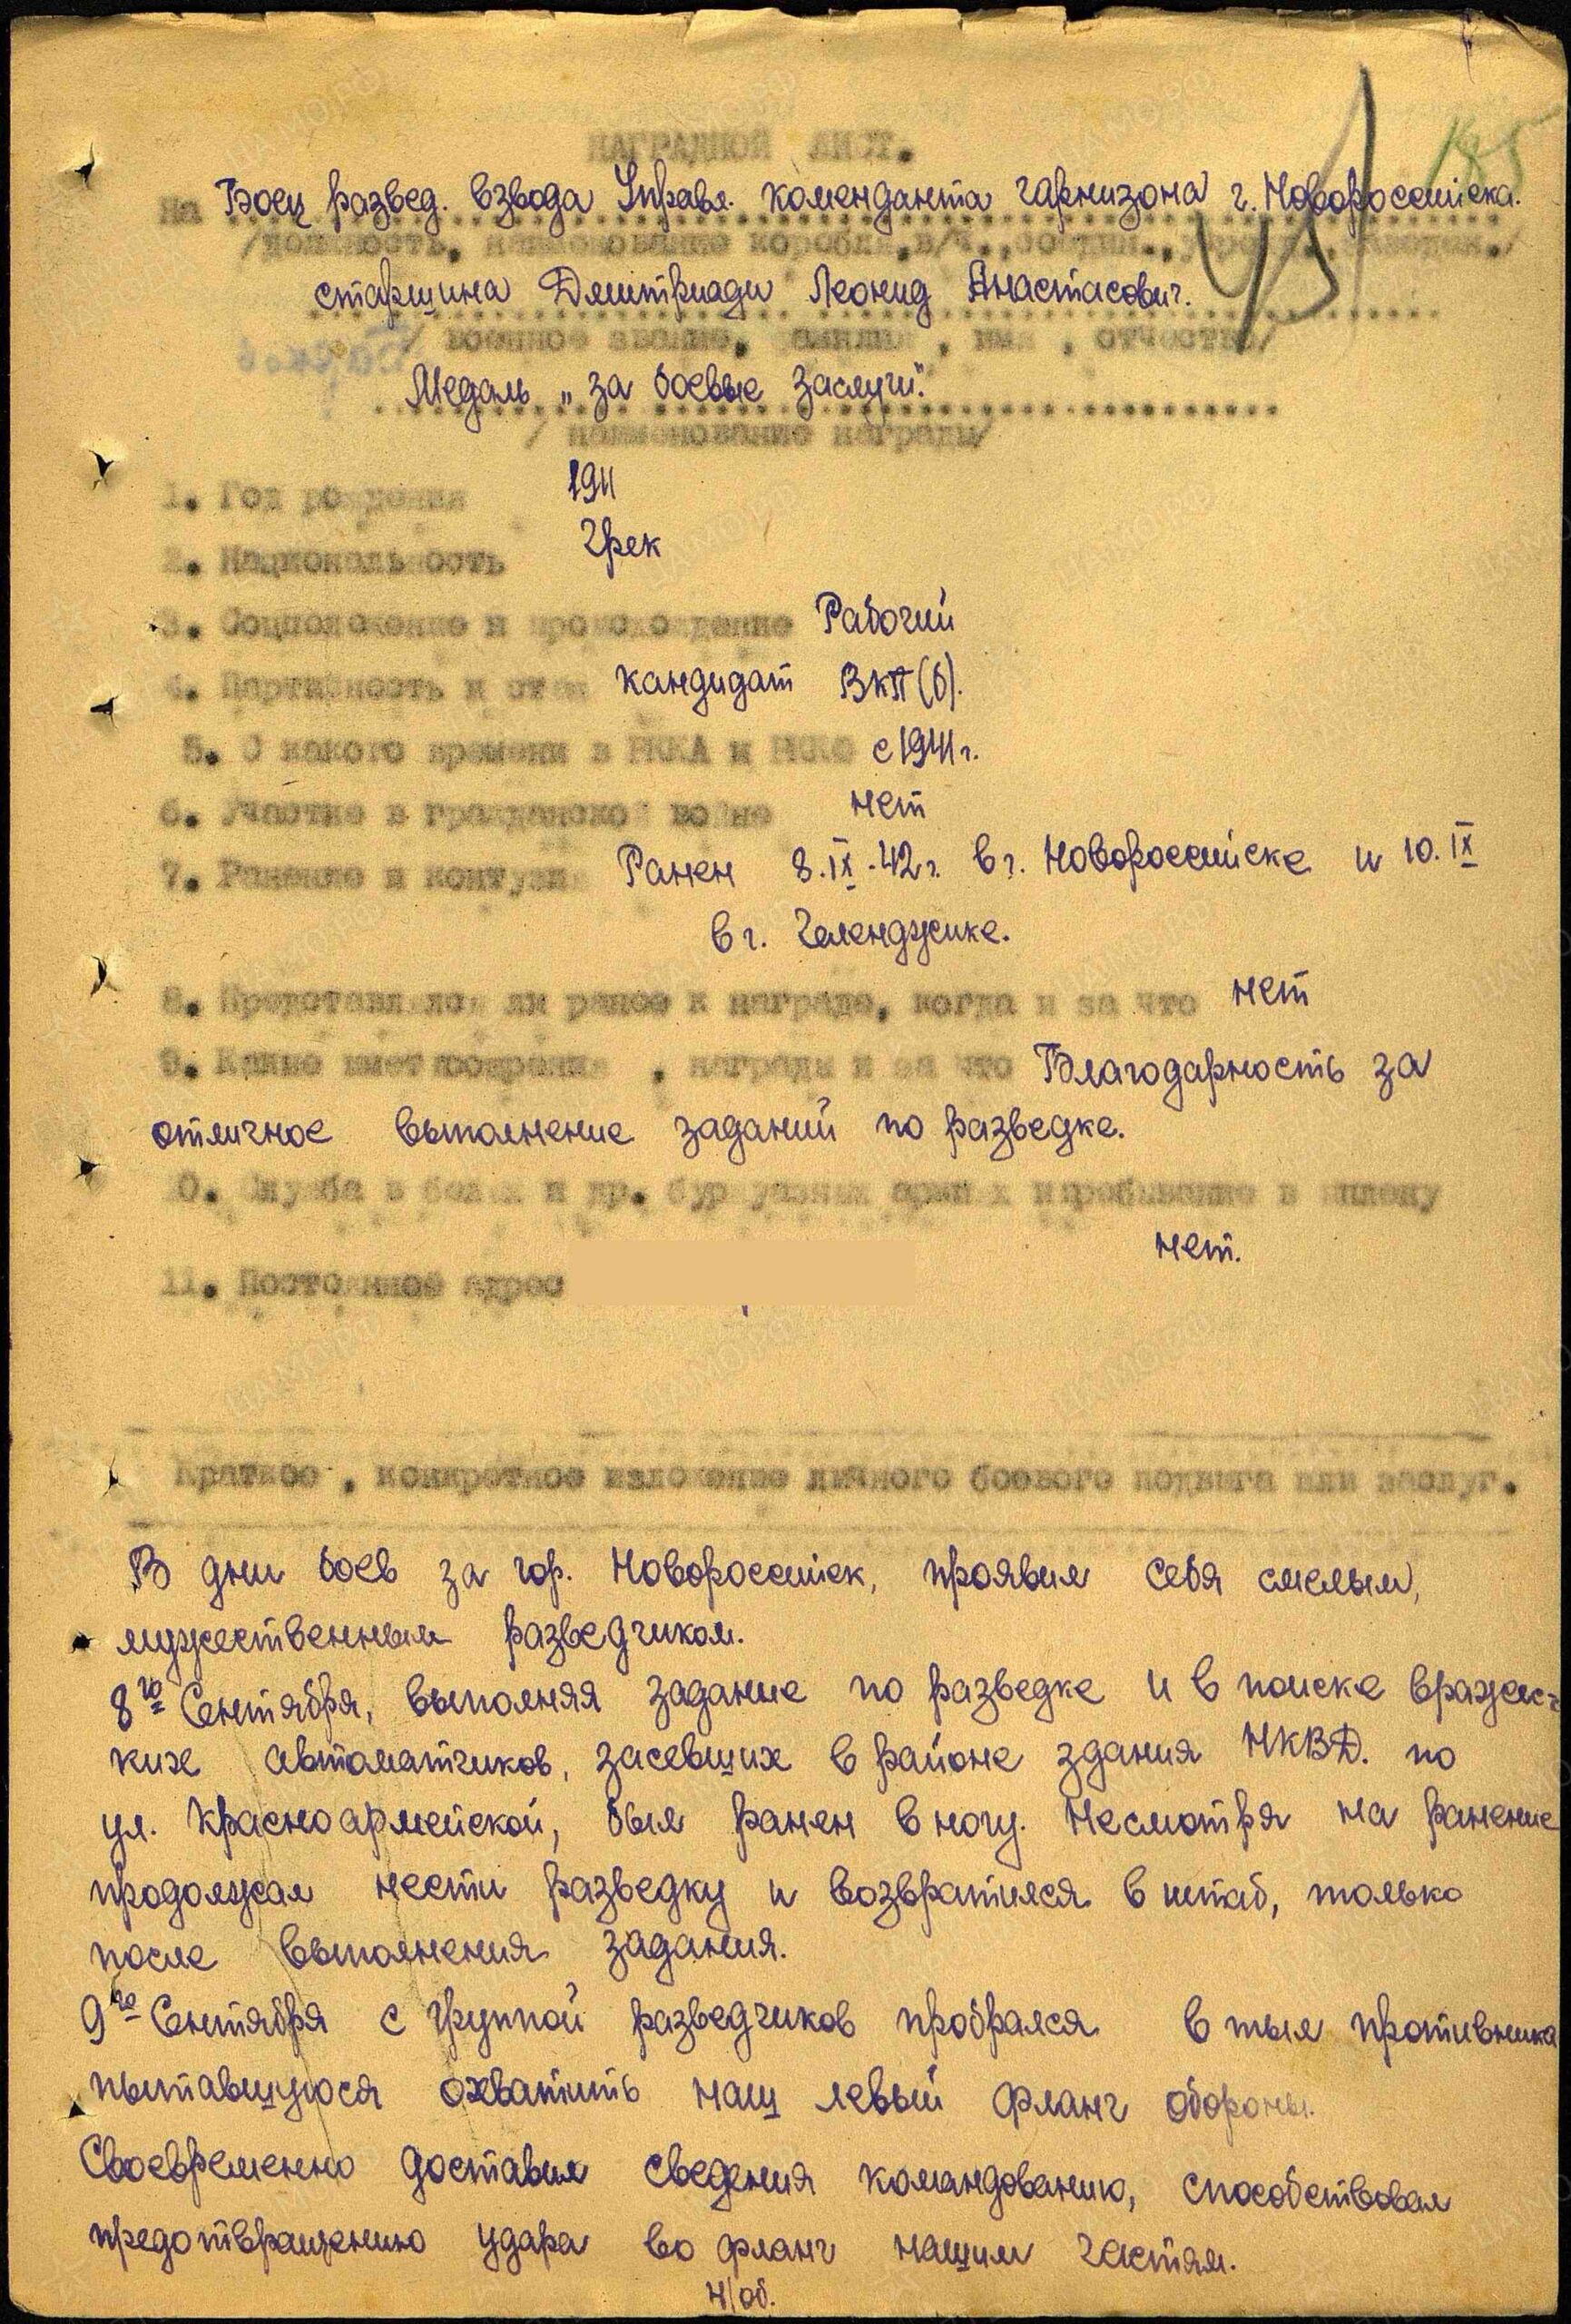 185
НАГРАДНОЙ ЛИСТ.
На Боец развед. взвода Управл. коменданта гарнизона г. Новороссийска.
/должность, наименование корабля, в/ч.,
старшина Дмитриади Леонид Анастасович.
/ военное звание, фамилия, имя, отчество/
Медаль „за боевые заслуги".
/ наименование награды/
1. Год рождения 1911
2. Национальность Грек
3. Соцположение и происхождение Рабочий
4. Партийность и стаж кандидат ВКП(б).
5. С какого времени в РККА и РККФ с 1941 г.
6. Участие в гражданской войне нет
7. Ранение и контузии Ранен 8.IX.-42 г. в г. Новороссийске и 10.IX
в г. Геленджике.
8. Представлялся ли ранее к награде, когда и за что нет
9. Какие имеет поощрения, награды и за что Благодарность за
отличное выполнение заданий по разведке.
10. Служба в белых и др. буржуазных армиях и пребывание в плену
нет.
11. Постоянный адрес
Краткое, конкретное изложение личного боевого подвига или заслуг.
В дни боев за гор. Новороссийск, проявил себя смелым,
мужественным разведчиком.
8го Сентября, выполняя задание по разведке и в поиске вражес-
ких автоматчиков, засевших в районе здания НКВД. по
ул. Красноармейской, был ранен в ногу. Несмотря на ранение
продолжал нести разведку и возвратился в штаб, только
после выполнения задания.
9го Сентября с группой разведчиков пробрался в тыл противника
пытавшуюся охватить наш левый фланг обороны.
Своевременно доставил сведения командованию, способствовал
предотвращению удара во фланг нашим частям.
н/об.